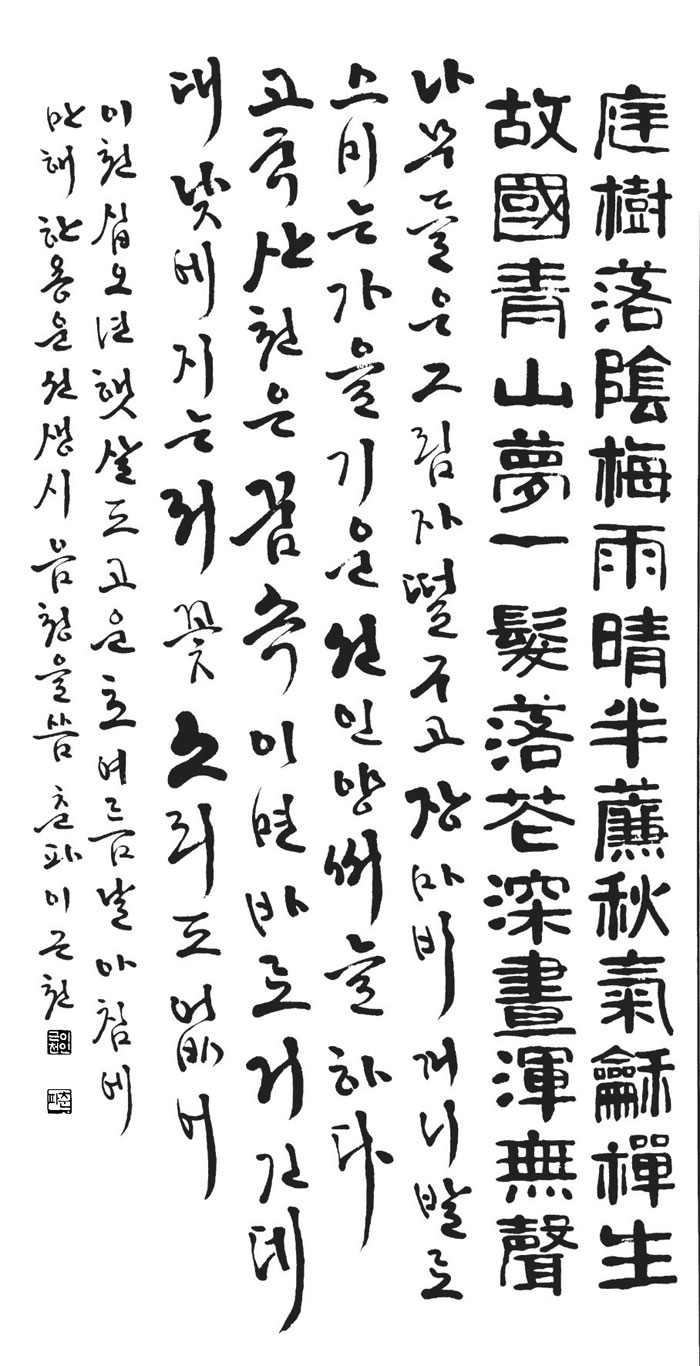 庭樹落陰梅雨晴半簾秋氣龢禪生
故國青山夢一髮落花深晝渾無聲
나무들은 그림자 떨구고 장마비 개니 발로
스비는 가을 기운 선인양 싸늘하다
고국산천은 꿈 속이면 바로 거긴데
대낮에 지는 저 꽃 소리도 없네
이천십오년 햇살도 고운 초여름 날 아침에
만해 한용운 선생 시 음천을 씀 춘파 이근천